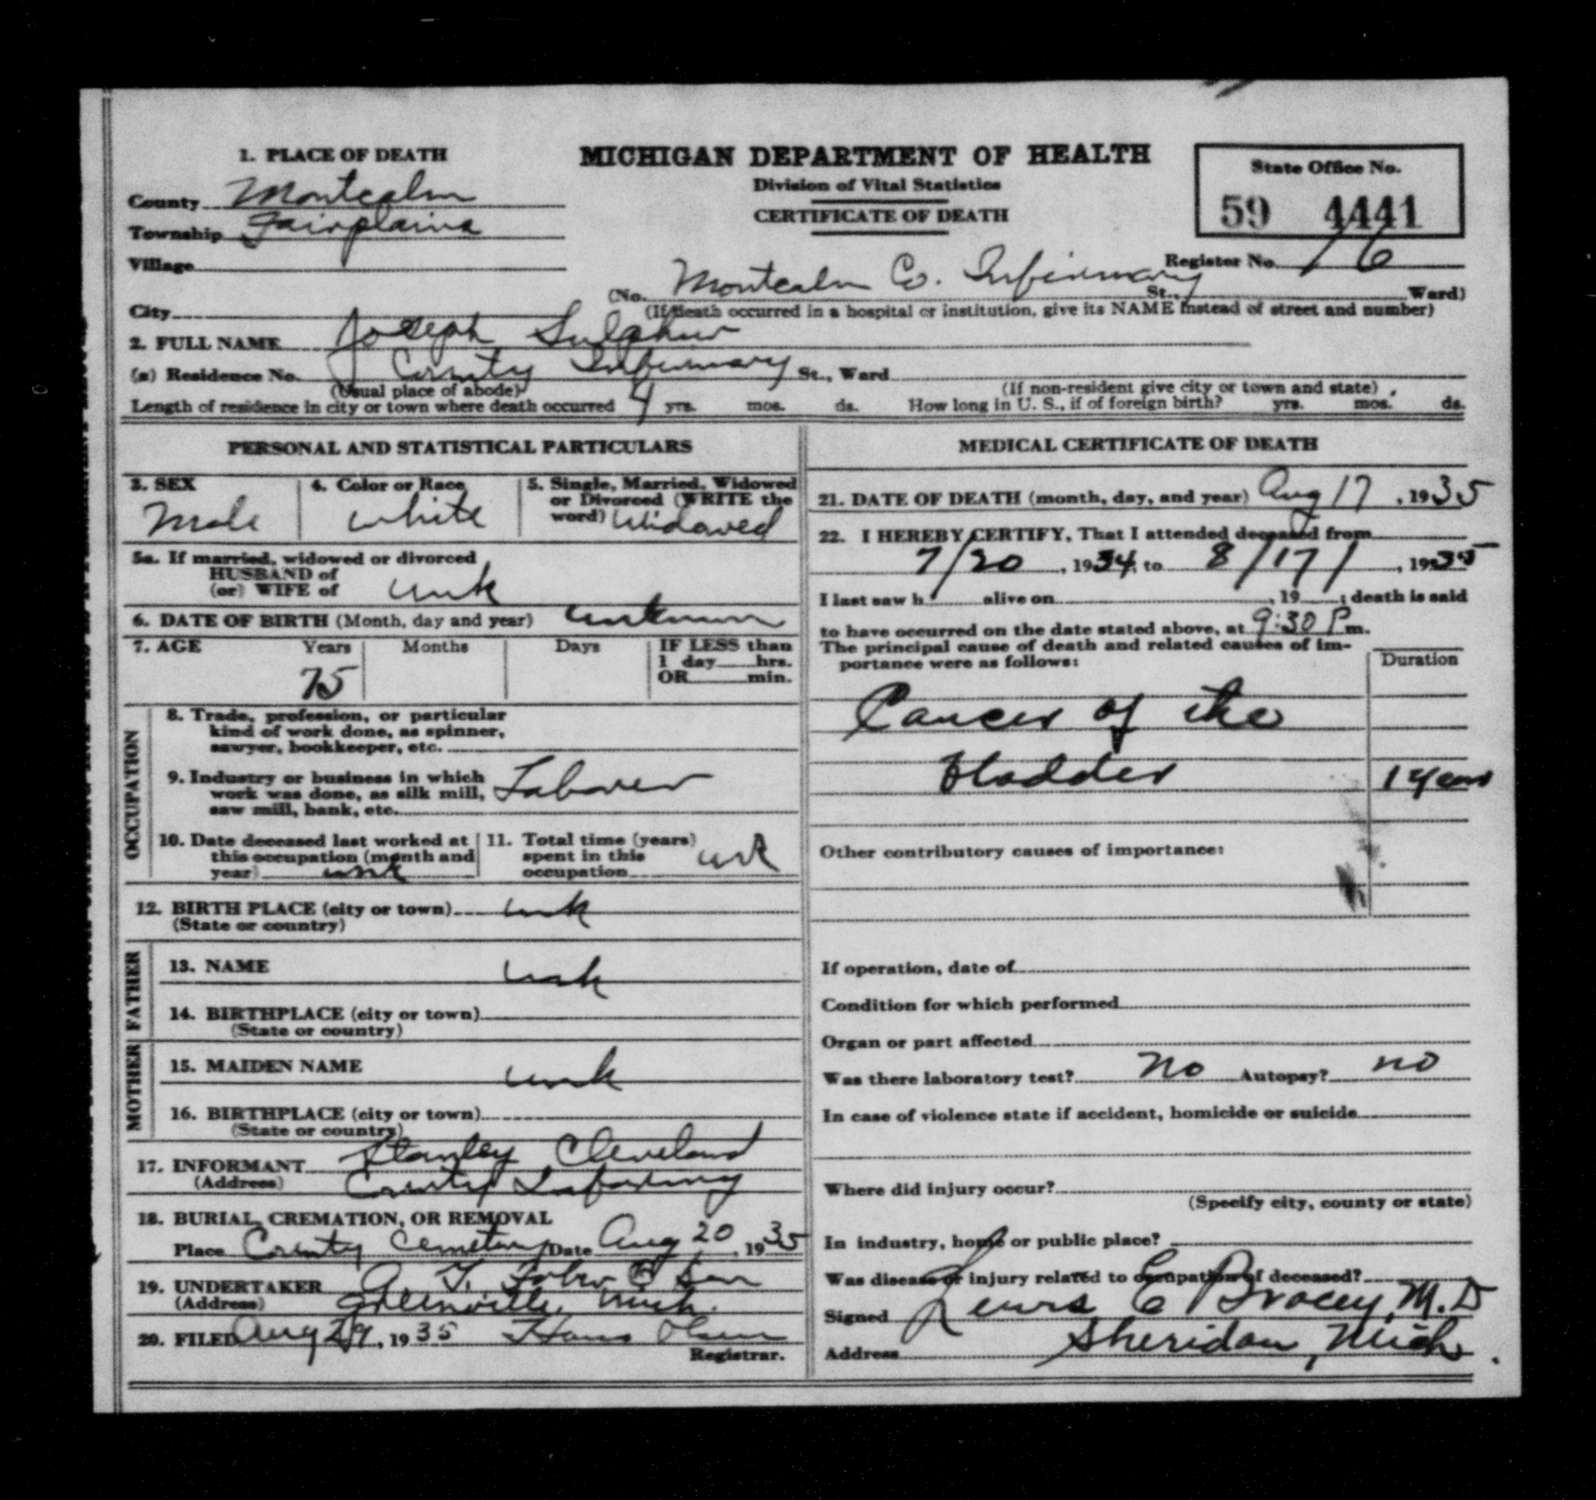 1. PLACE OF DEATH
MICHIGAN DEPARTMENT OF HEALTH
Division of Vital Statistics
CERTIFICATE OF DEATH
State Office No.
59 4441
County Montcalm
Township Fairplains
Village
Register No. 16
(No. Montcalm Co. Infirmary St., Ward)
(If death occurred in a hospital or institution, give its NAME instead of street and number)
City
2. FULL NAME Joseph Sulphur
(a) Residence No. County Infirmary St., Ward
(Usual place of abode)
(If non-resident give city or town and state)
Length of residence in city or town where death occurred 4 yrs. mos. ds. How long in U. S., if of foreign birth? yrs. mos. ds.
PERSONAL AND STATISTICAL PARTICULARS
3. SEX
Male
4. Color or Race
white
5. Single, Married, Widowed
or Divorced (WRITE the
word) Widowed
5a. If married, widowed or divorced
HUSBAND of
(or) WIFE of unk
6. DATE OF BIRTH (Month, day and year) unknown
7. AGE Years Months Days IF LESS than
1 day hrs.
OR min.
75
OCCUPATION
8. Trade, profession, or particular
kind of work done, as spinner,
sawyer, bookkeeper, etc.
9. Industry or business in which
work was done, as silk mill,
saw mill, bank, etc. Laborer
10. Date deceased last worked at
this occupation (month and
year) unk
11. Total time (years)
spent in this
occupation unk
12. BIRTH PLACE (city or town) unk
(State or country)
FATHER
13. NAME unk
14. BIRTHPLACE (city or town)
(State or country)
MOTHER
15. MAIDEN NAME unk
16. BIRTHPLACE (city or town)
(State or country)
17. INFORMANT Stanley Cleveland
(Address) County Infirmary
18. BURIAL, CREMATION, OR REMOVAL
Place County Cemetery Date Aug 20, 1935
19. UNDERTAKER
(Address) Greenville, Mich.
20. FILED Aug 29, 1935 Hans Olsen
Registrar.
MEDICAL CERTIFICATE OF DEATH
21. DATE OF DEATH (month, day, and year) Aug 17, 1935
22. I HEREBY CERTIFY, That I attended deceased from
7/20, 1934, to 8/17/, 1935
I last saw h alive on , 19 ; death is said
to have occurred on the date stated above, at 9:30 P m.
The principal cause of death and related causes of im-
portance were as follows:
Duration
Cancer of the
bladder 1 year
Other contributory causes of importance:
If operation, date of
Condition for which performed
Organ or part affected
Was there laboratory test? No Autopsy? no
In case of violence state if accident, homicide or suicide
Where did injury occur?
(Specify city, county or state)
In industry, home or public place?
Was disease or injury related to occupation of deceased?
Signed Lewis E Bracey, M.D
Address Sheridan, Mich.